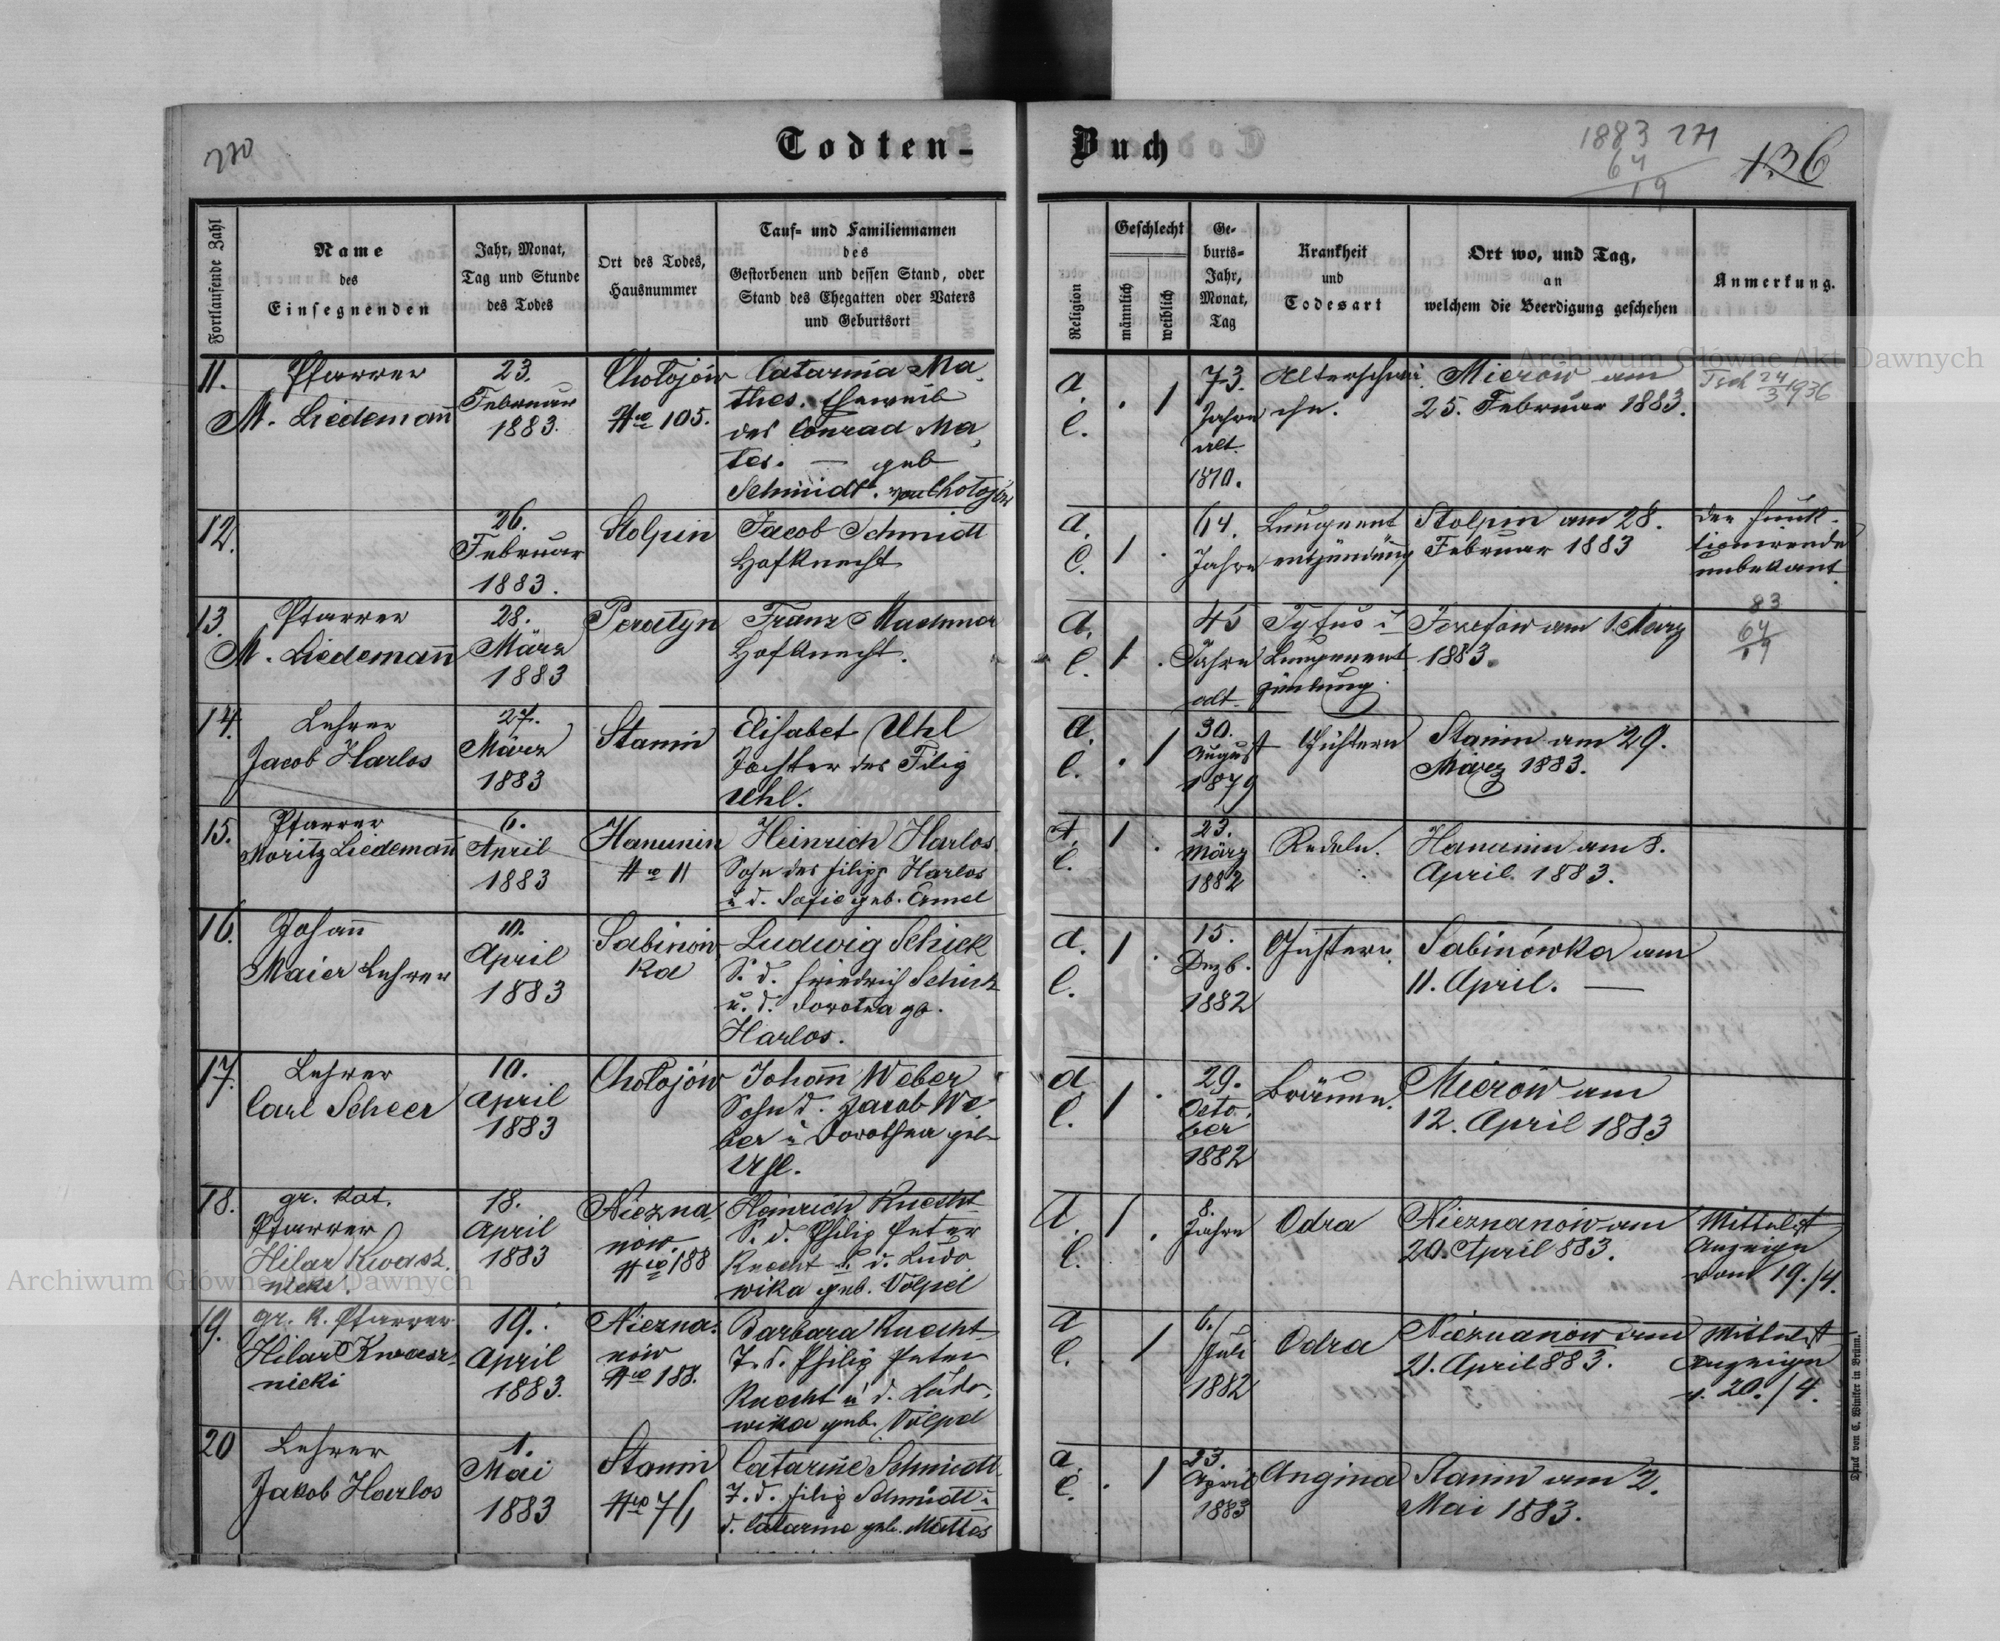 Todten- Buch
270
1883 271
64
19
136
Fortlaufende Zahl
Name
des
Einsegnenden
Jahr, Monat,
Tag und Stunde
des Todes
Ort des Todes,
Hausnummer
Tauf- und Familiennamen
des
Gestorbenen und dessen Stand, oder
Stand des Ehegatten oder Vaters
und Geburtsort
Religion
Geschlecht
männlich
weiblich
Ge-
burts-
Jahr,
Monat,
Tag
Krankheit
und
Todesart
Ort wo, und Tag,
an
welchem die Beerdigung geschehen
Anmerkung.
11.
Pfarrer
M. Liedemañ
23.
Februar
1883.
Chołojów
Nro 105.
Catarina Ma-
thes. Eheweib
des Conrad Ma-
tes. — geb
Schmidt. von Chołojów
a.
c.
. 1
73.
Jahre
alt.
1810.
Alterschwä-
che.
Mierów am
25. Februar 1883.
24/3 1936
12.
26.
Februar
1883.
Stolpin
Jacob Schmidt
Hofknecht
a.
c.
1 .
64.
Jahre
Lungenent
enzündung
Stolpin am 28.
Februar 1883
der funk-
tionirende
unbekant.
13.
Pfarrer
M. Liedemañ
28.
März
1883
Peratyn
Franz Machmer
Hofknecht.
a.
c.
1 .
45
Jahre
alt
Tyfus u
Lungenent
zündung.
Jozefów am 1. Merz
1883.
83
64
19
14.
Lehrer
Jacob Harlos
27.
März
1883
Stanin
Elisabet Uhl
Tochter des Filip
Uhl.
a.
c.
. 1
30.
August
1879
Gichtern
Stanin am 29.
März 1883.
15.
Pfarrer
Moritz Liedemañ
6.
April
1883
Hanunin
Nro 11
Heinrich Harlos
Sohn des Filipp Harlos
u d. Sofie geb. Ermel
A.
c.
1 .
23.
März
1882
Rudeln.
Hanunin am 8.
April 1883.
16.
Johañ
Maier Lehrer
10.
April
1883
Sabinów-
ka
Ludwig Schick
S. d. Friedrich Schick
u. d. Dorotea gb.
Harlos.
a.
c.
1 .
15.
Dezb.
1882
Gichtern.
Sabinówka am
11. April. —
17.
Lehrer
Carl Scheer
10.
April
1883
Chołojów
Johañ Weber
Sohn d. Jacob We-
ber u Dorothea geb
Uhl.
a
c.
1 .
29.
Octo-
ber
1882
Bräune.
Mierów am
12. April 1883
18.
gr. kat.
Pfarrer
Hilar Kwasz-
nicki.
18.
April
1883
Niezna-
now
Nro 188
Heinrich Knecht
S. d. Philip Peter
Knecht u. d. Ludo-
wika geb. Völpel
A.
c.
1 .
8.
Jahre
Odra
Nieznanów am
20. April 883.
Mittelst
Anzeige
vom 19./4.
19.
gr. k. Pfarrer
Hilar Kwasz-
nicki
19.
April
1883.
Niezna-
nów
Nro 188.
Barbara Knecht
T. d. Philip Peter
Knecht u d. Ludo-
wika geb. Völpel
a
c.
. 1
6.
Juli
1882
Odra
Nieznanów am
21. April 883.
Mittelst
Anzeige
v. 20./4.
20
Lehrer
Jakob Harlos
1.
Mai
1883
Stanin
Nro 7/1
Catarine Schmidt
T. d. Filip Schmidt u
d. Catarine geb. Mattes
a.
c.
. 1
23.
April
1883
Angina
Stanin am 2.
Mai 1883.
Druck von C. Winiker in Brünn.
Archiwum Główne Akt Dawnych
Archiwum Główne Akt Dawnych